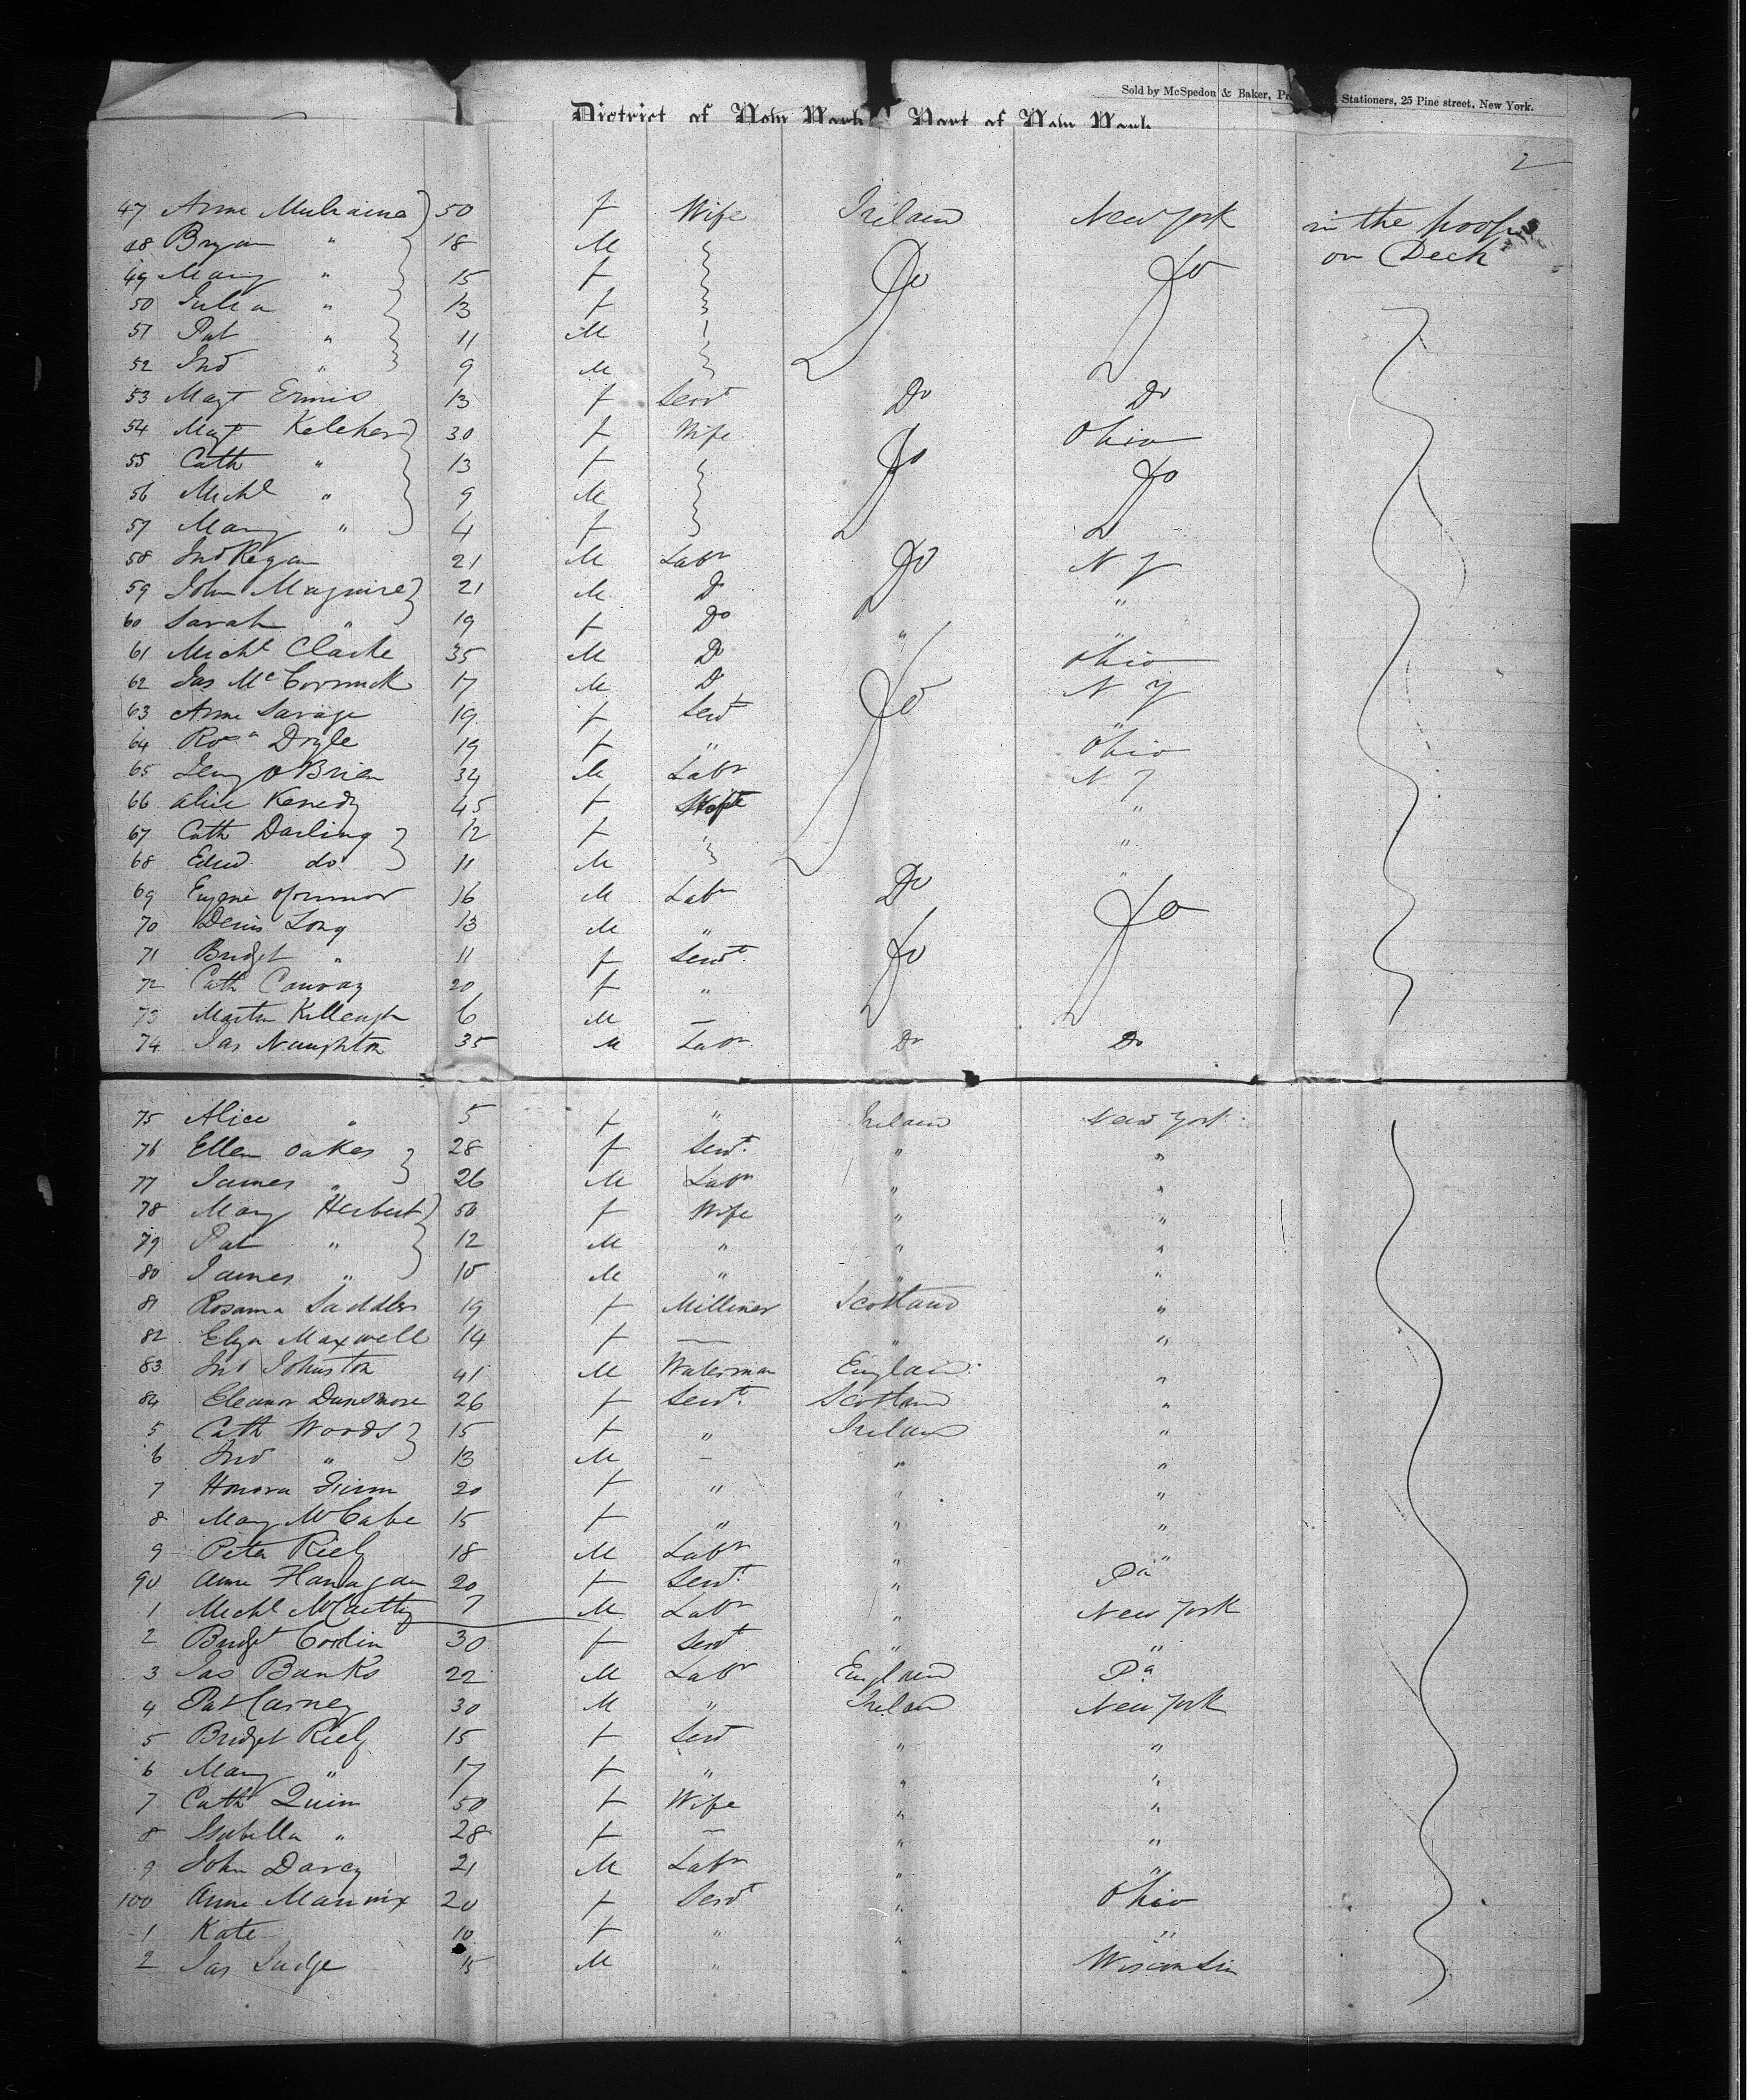 Sold by McSpedon & Baker, Stationers, 25 Pine street, New York.
District of New York Port of New York
2
47 Anne 50 f Wife Ireland New York in the
48 Bryan " 18 M on Deck
49 Mary " 15 f Do Do
50 Julia " 13 f
51 Pat " 11 M
52 Jno " 9 M
53 Magt Ennis 13 f Servt Do Do
54 Magt Keleher 30 f Wife Ohio
55 Cath " 13 f Do Do
56 Michl " 9 M
57 Mary " 4 f
58 Jno Regan 21 M Labr Do N Y
59 John Maguire 21 M D "
60 Sarah " 19 f Do " "
61 Michl Clarke 35 M D Ohio
62 Jas McCormick 17 M D N Y
63 Anne Savage 19 f Servt Do "
64 Rosa Doyle 19 f " Ohio
65 O'Brien 34 M Labr N Y
66 Alice Kenedy 45 f "
67 Cath Darling 12 f " "
68 Edwd do 11 M "
69 Eugene OConnor 16 M Labr Do
70 Denis Long 13 M " Do
71 Bridget " 11 f Servt Do
72 Cath Conway 20 f "
73 Martin 6 M —
74 Jas Naughton 35 M Labr Do Do
75 Alice " 5 f " Ireland New York
76 Ellen Oakes 28 f Servt " "
77 James " 26 M Labr " "
78 Mary Herbert 50 f Wife " "
79 Pat " 12 M " " "
80 James " 10 M " " "
81 Rosanna Saddler 19 f Milliner Scotland "
82 Eliza Maxwell 14 f — " "
83 Jno Johnston 41 M Waterman England "
84 Eleanor Dunsmore 26 f Servt Scotland "
5 Cath Woods 15 f " Ireland "
6 Jno " 13 M — " "
7 Honora 20 f " " "
8 Mary McCabe 15 f " " "
9 Peter Riely 18 M Labr " "
90 Anne Flanagan 20 f Servt " Pa
1 Michl McCartty 7 M Labr " New York
2 Bridget 30 f Servt " "
3 Jas Banks 22 M Labr England Pa
4 Pat Carney 30 M " Ireland New York
5 Bridget Riely 15 f Servt " "
6 Mary " 17 f " " "
7 Cath Quinn 50 f Wife " "
8 Isabella " 28 f — " "
9 John Darcy 21 M Labr " "
100 Anne Mannix 20 f Servt " Ohio
1 Kate 10 f " " "
2 Jas Judge 15 M " " Wisconsin